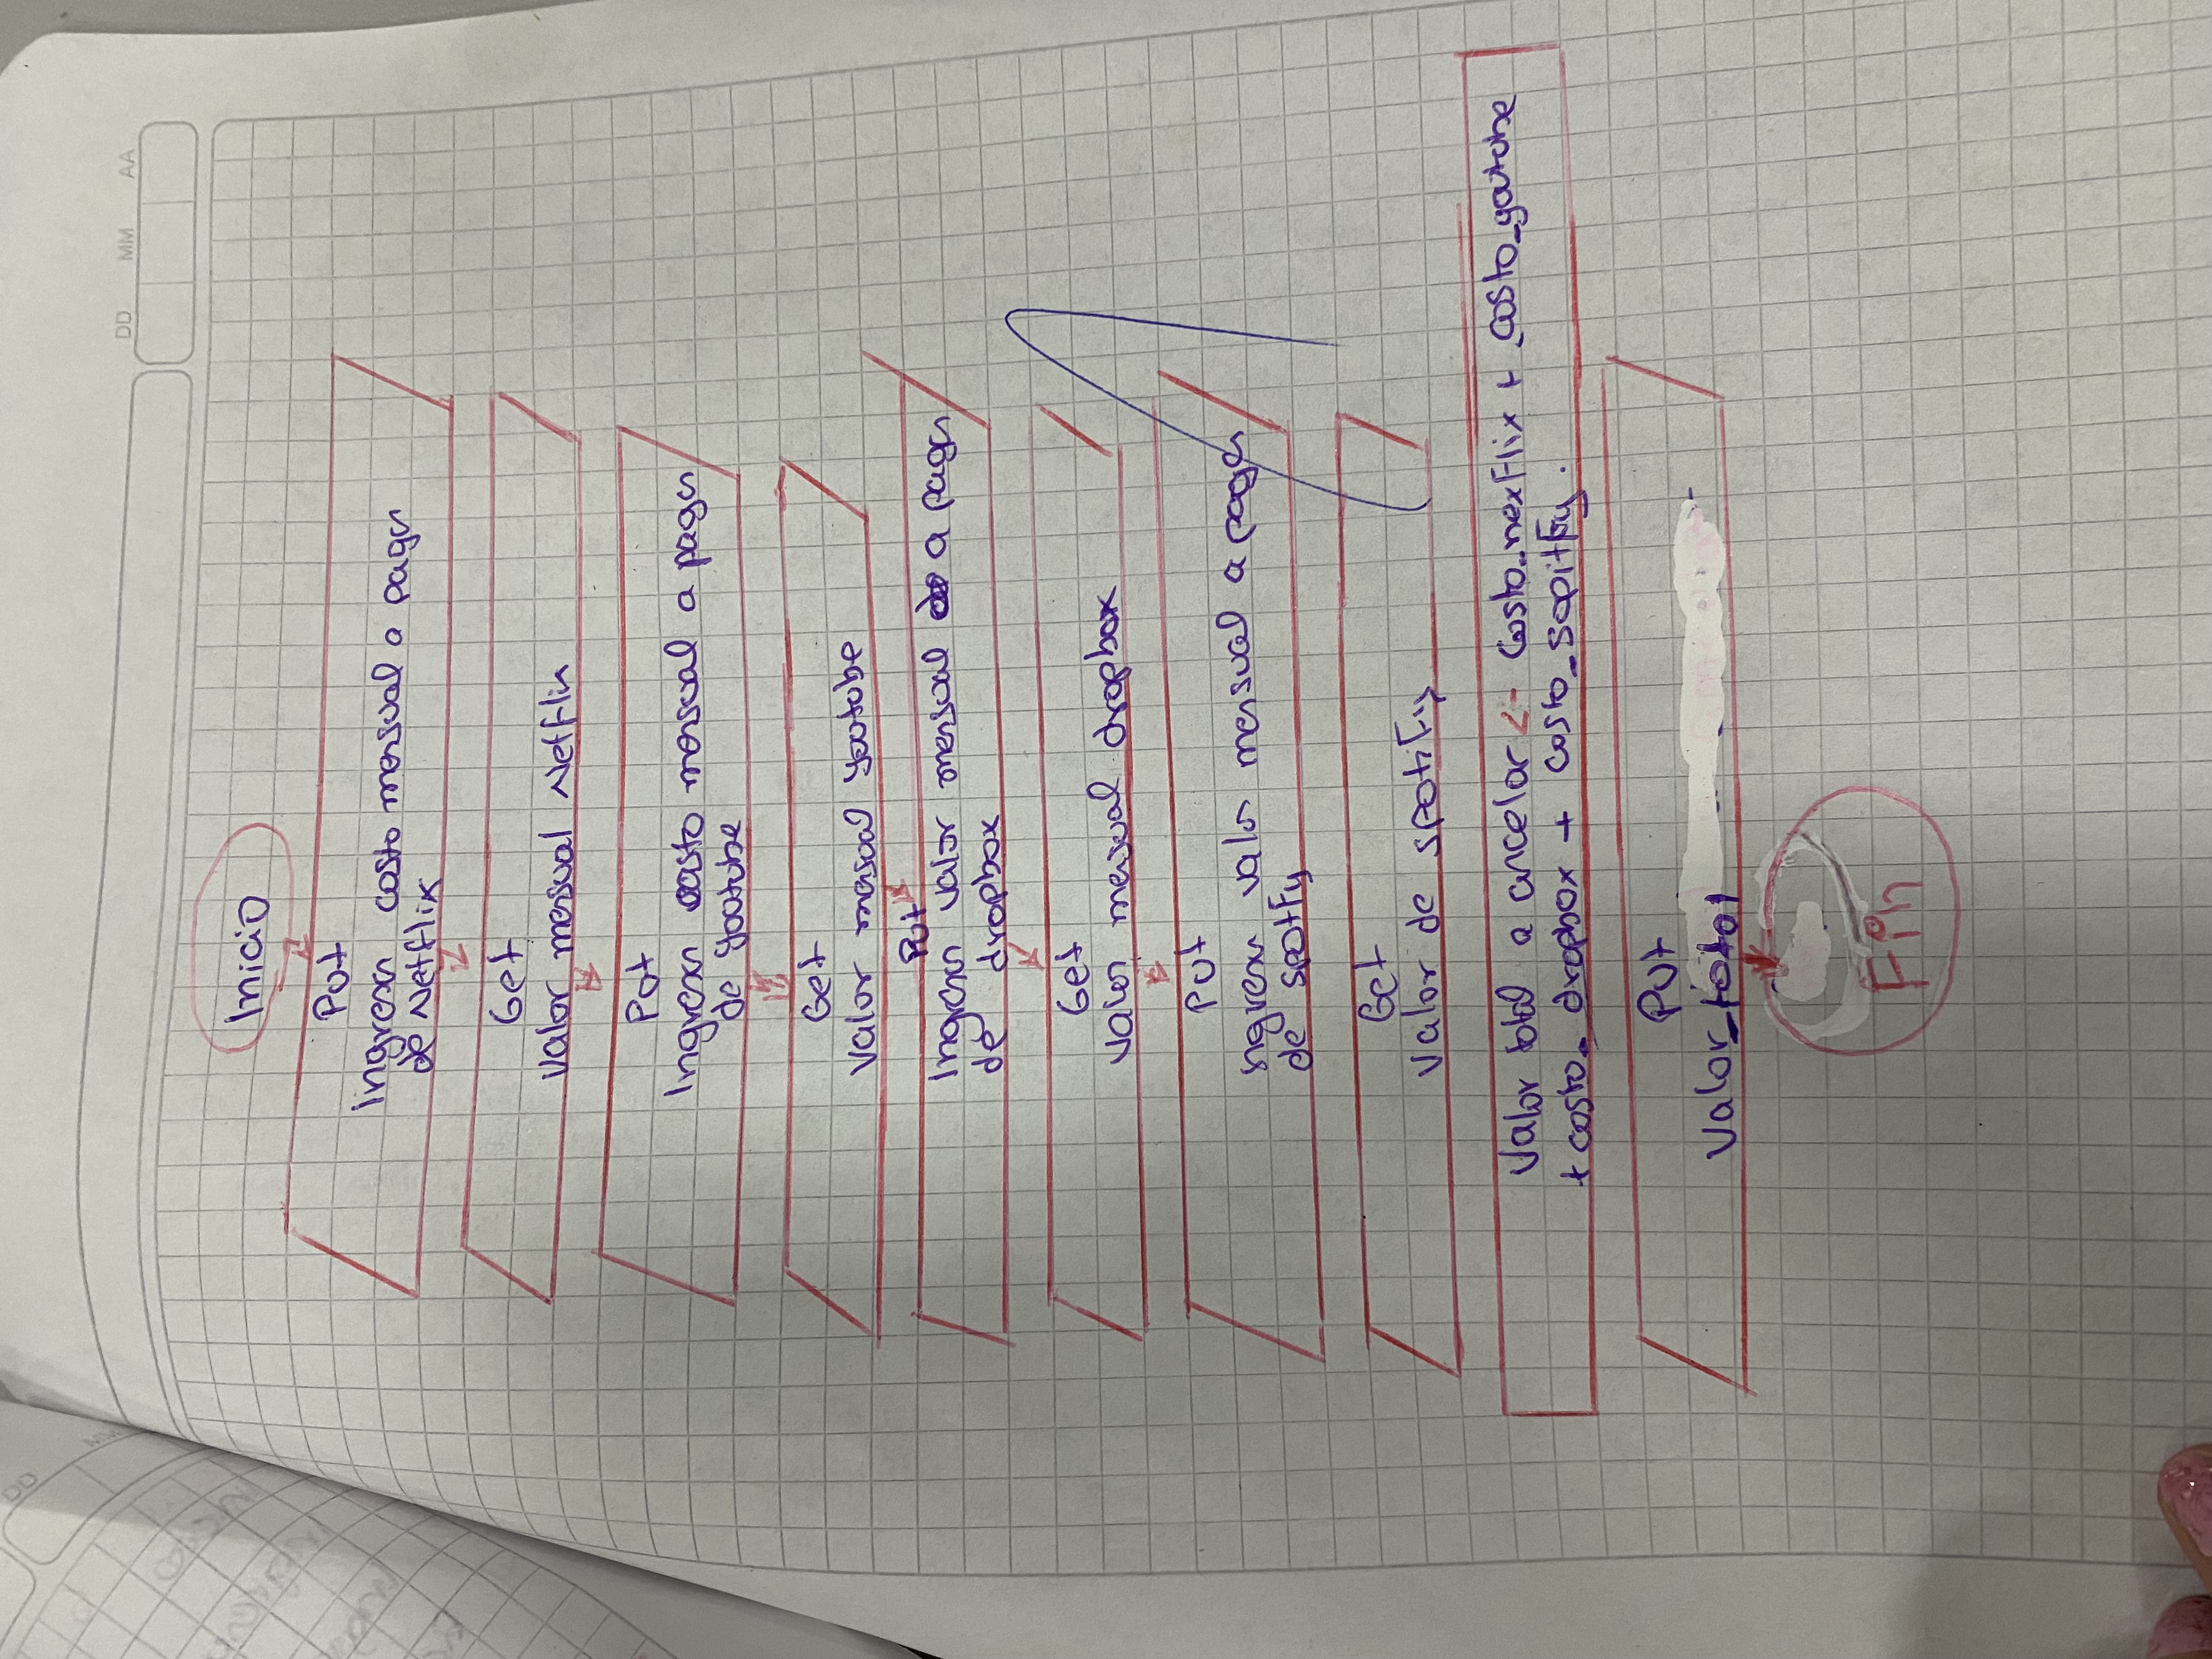 DD MM AA
Inicio
Put
Ingresar costo mensual a pagar
de Netflix
Get
Valor mensual Netflix
Put
Ingresar costo mensual a pagar
de youtube
Get
Valor mensual youtube
Put
Ingresar valor mensual a pagar
de dropbox
Get
Valor mensual dropbox
Put
Ingresar valor mensual a pagar
de spotfy
Get
Valor de spotiFy
Valor total a ancelar <- Costo_nexFlix + costo_youtube
+ costo_dropbox + costo_sopitfy.
Put
Valor_total
Fin